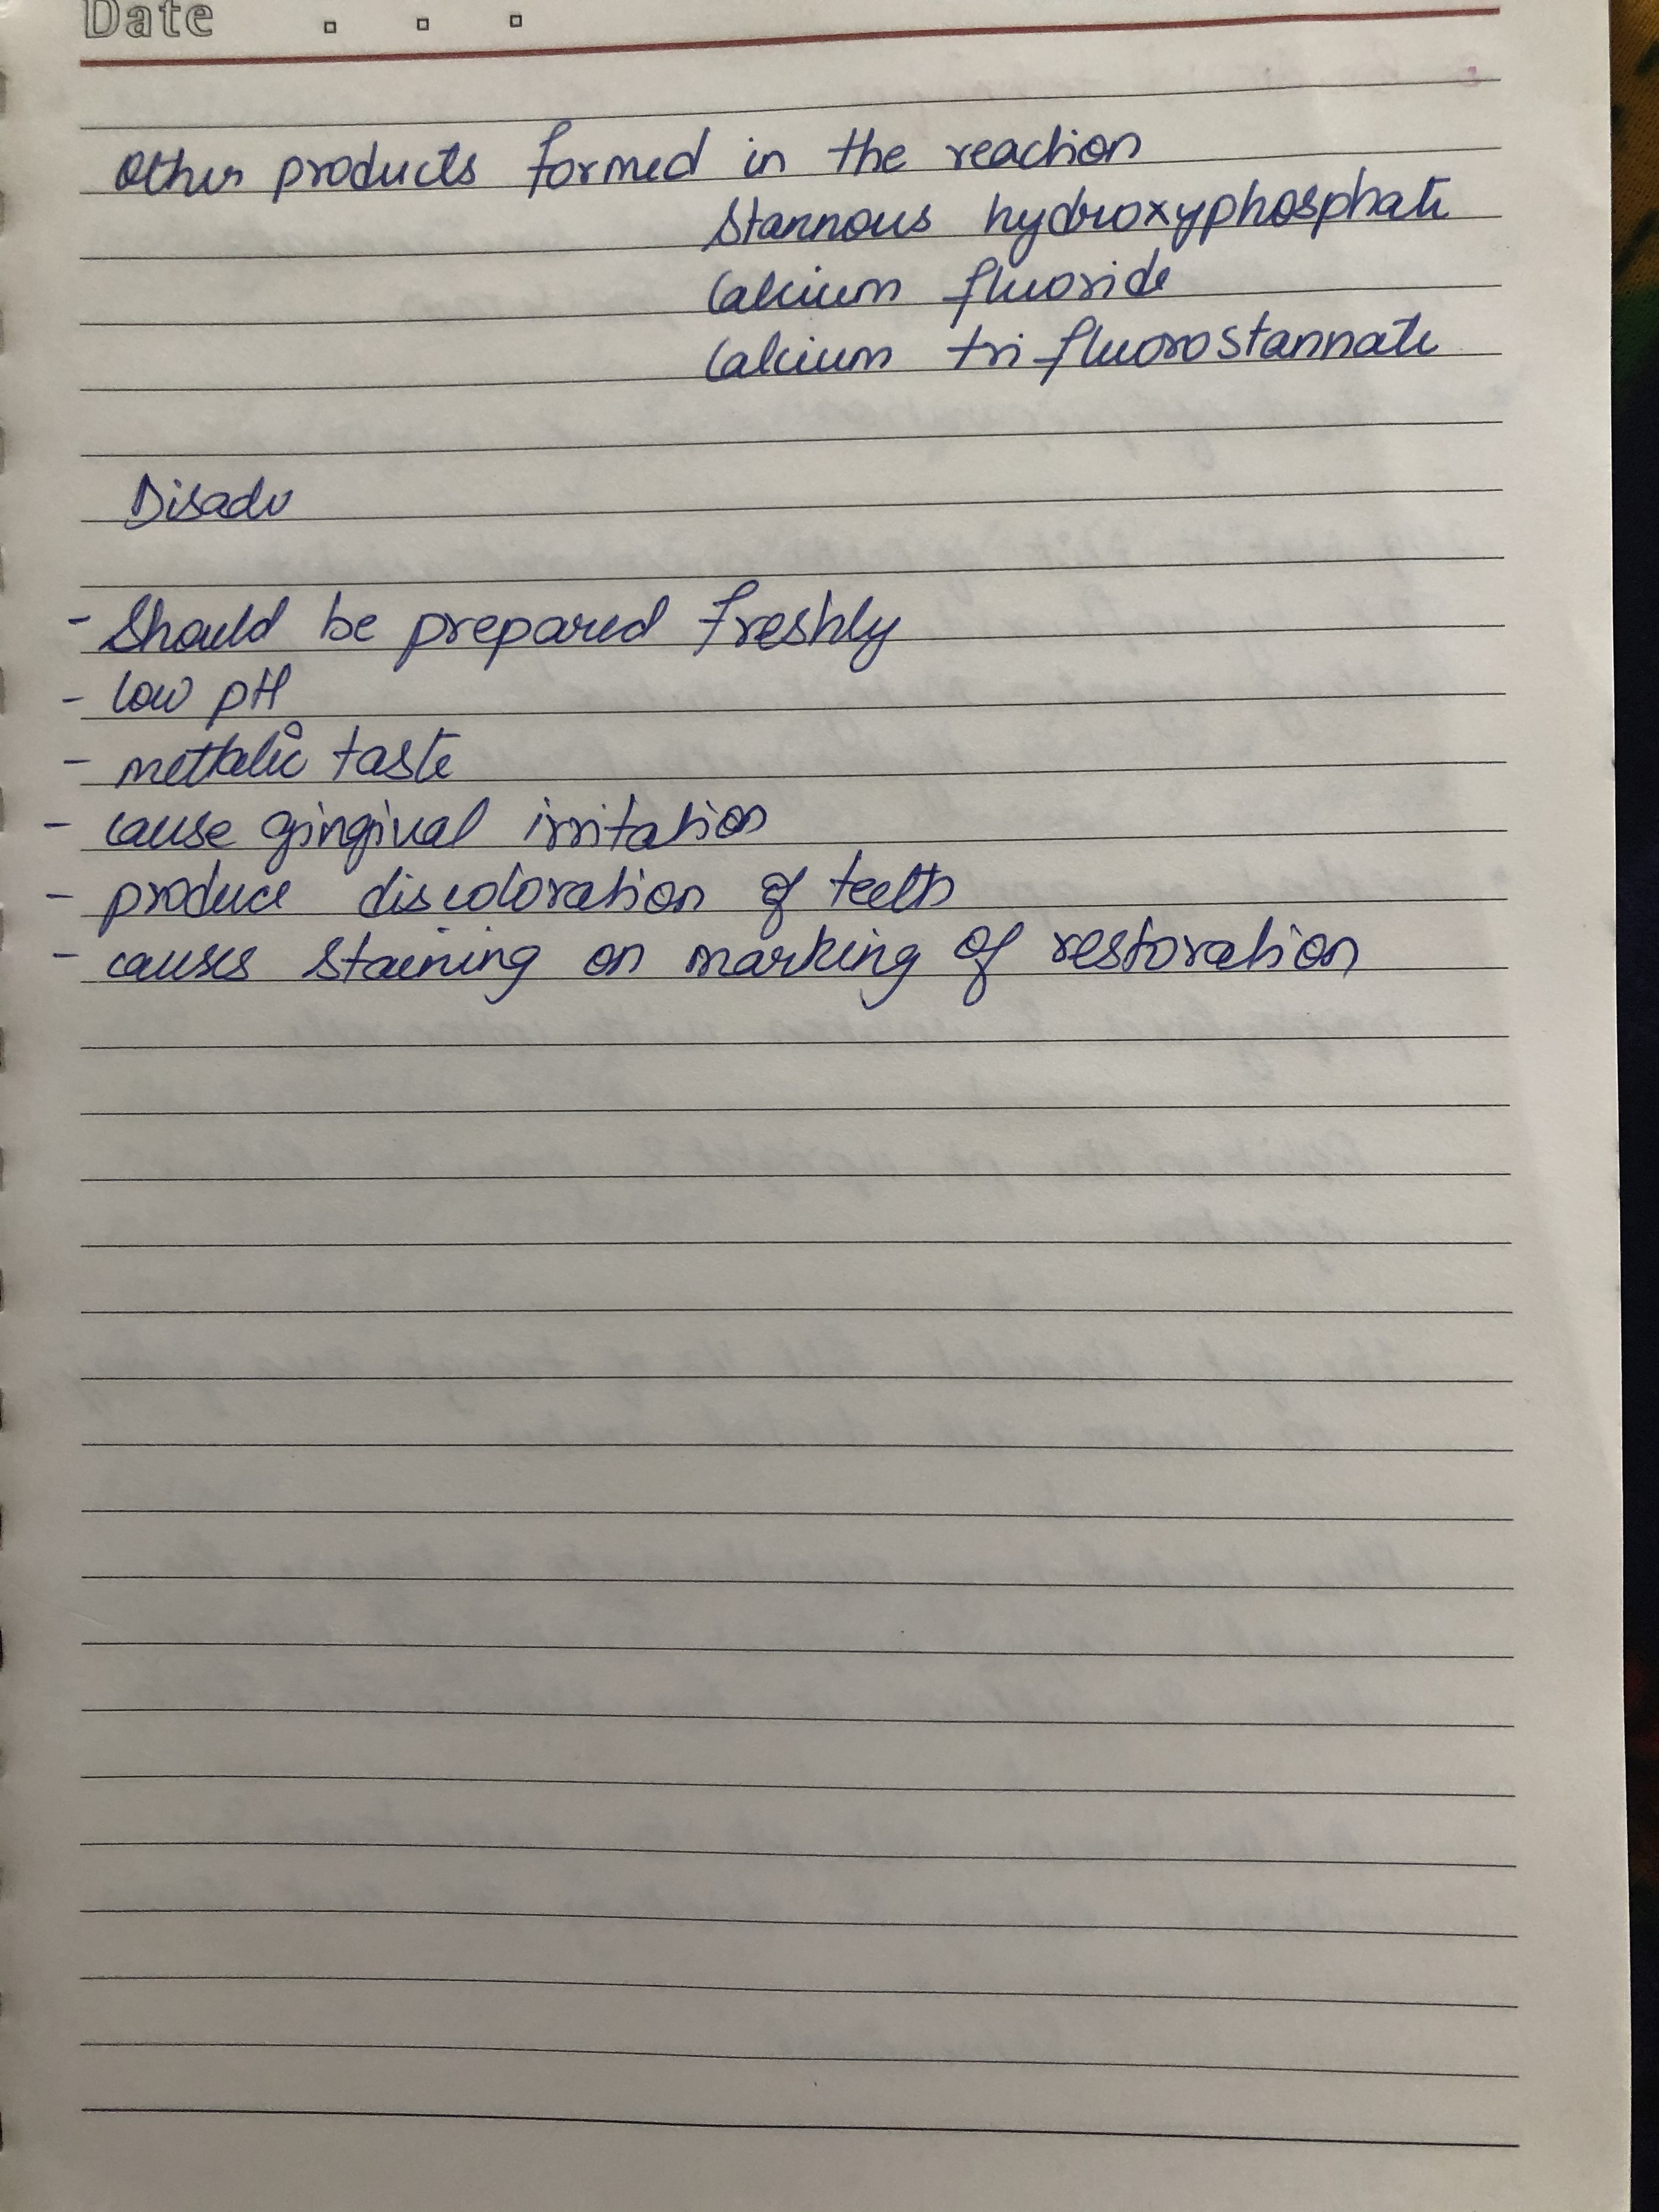 Date
Other products formed in the reaction
Stannous hydroxyphosphate
Calcium fluoride
Calcium trifluorostannate
Disadv
- Should be prepared freshly
- low pH
- mettalic taste
- cause gingival irritation
- produce discoloration of teeth
- causes staining on marking of restoration